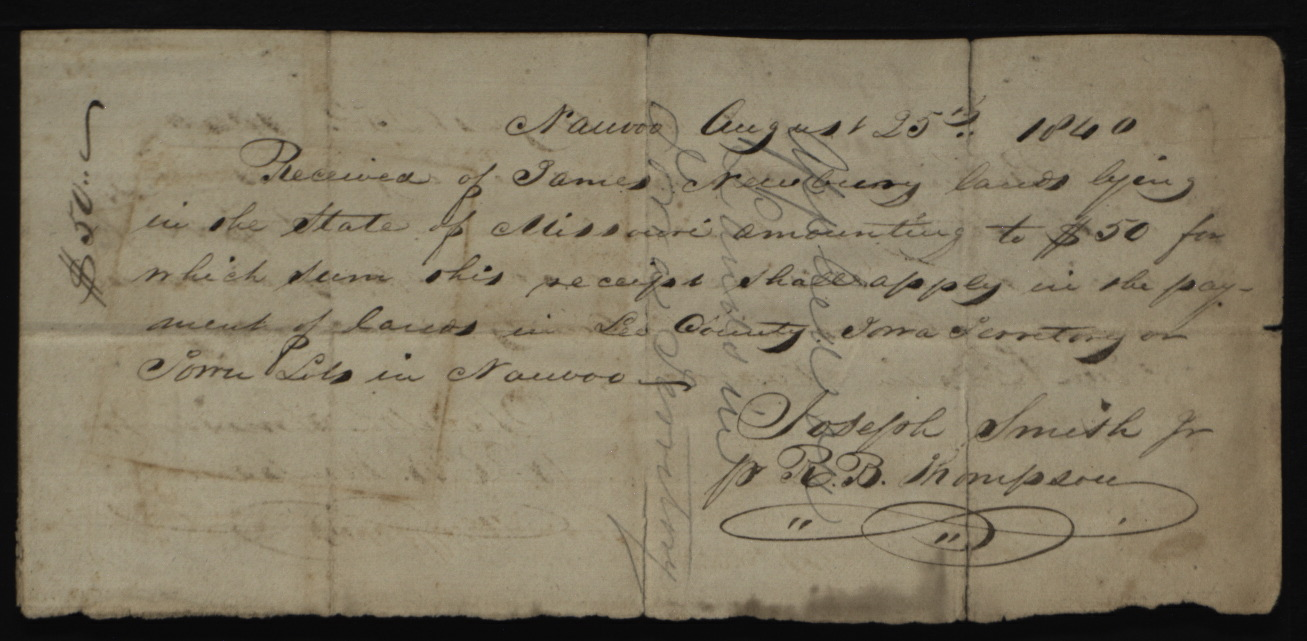 $50..
Nauvoo August 25th. 1840
Received of James Newbury lands lying
in the State of Missouri amounting to $50 for
which sum this receipt shall apply in the pay-
ment of lands in Lee County Iowa Territory or
Town Lots in Nauvoo
Joseph Smith Jr
pr R. B. Thompson